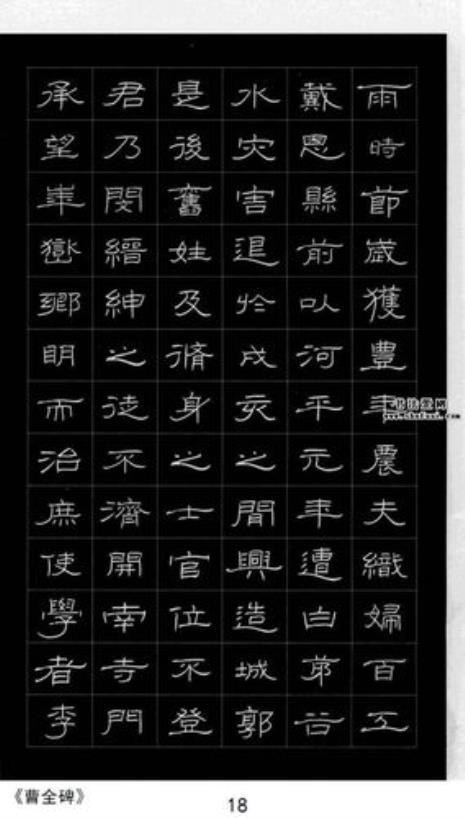 雨時節歲獲豐年農夫織婦百工
戴恩縣前以河平元年遭白茅谷
水灾害退於戌亥之間興造城郭
是後舊姓及脩身之士官位不登
君乃閔縉紳之徒不濟開南寺門
承望華嶽鄉明而治庶使學者李
《曹全碑》
18